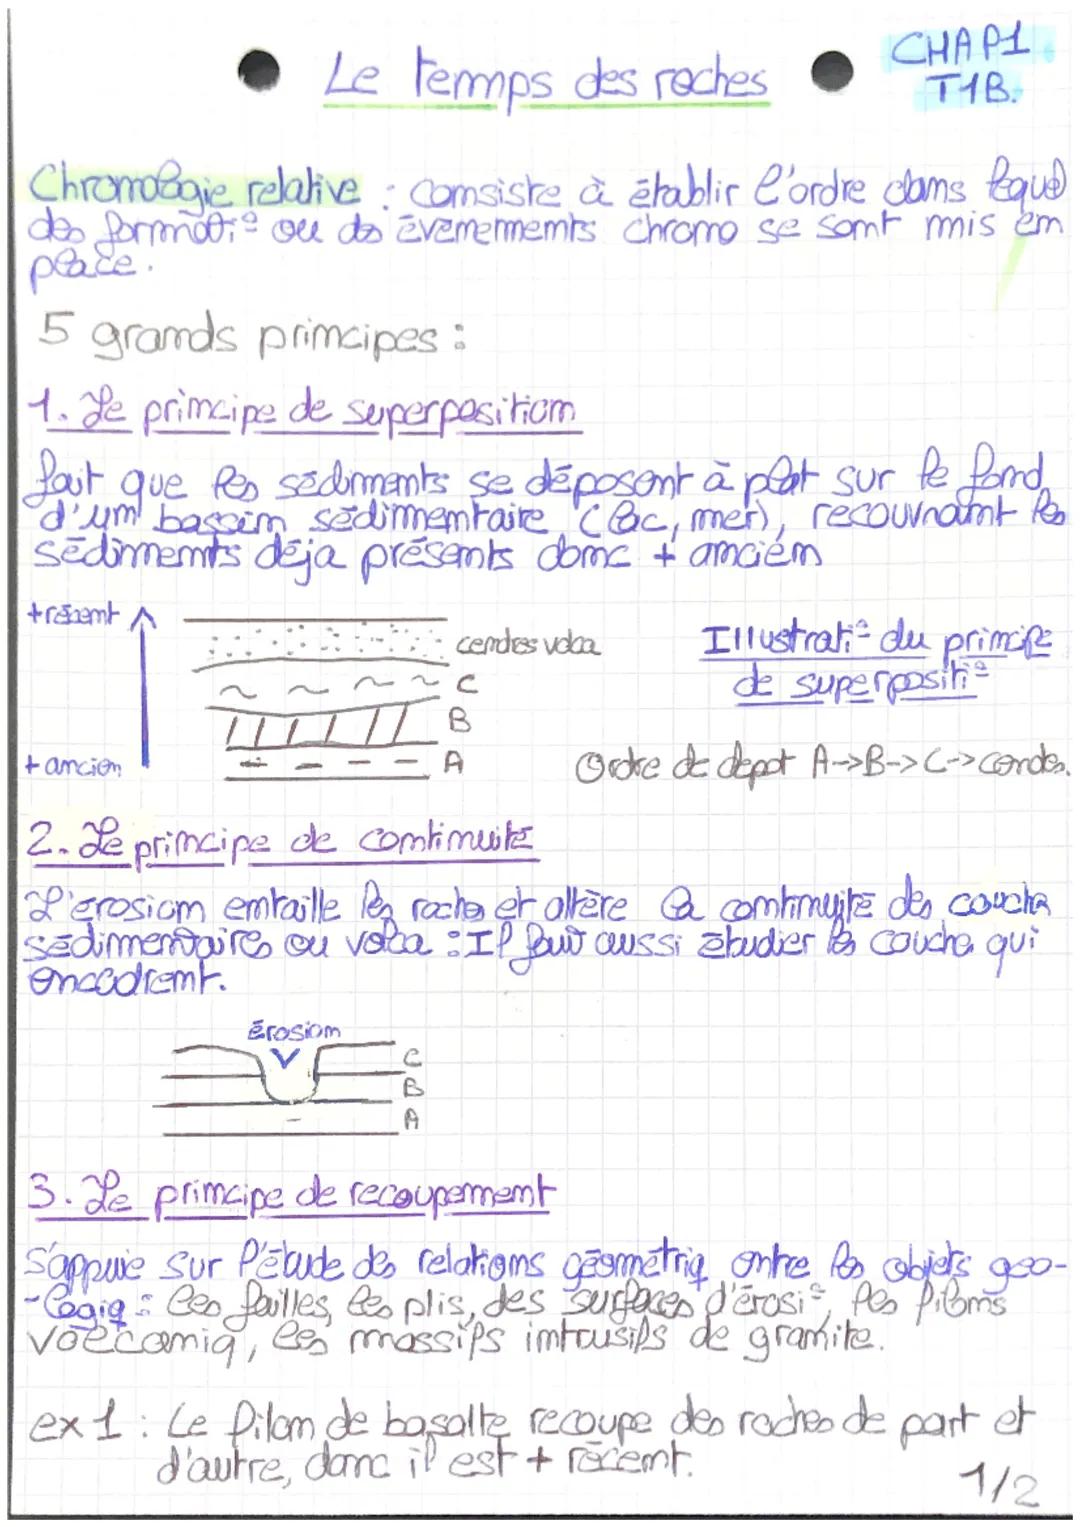 Le temps des roches
CHAP1
T1B.
Chronologie relative : consiste à établir l'ordre dans lequel
des formati° ou des évènements chrono se sont mis en
place.
5 grands principes :
1. Le principe de superposition
fait que les sédiments se déposent à plat sur le fond
d'un bassin sédimentaire (lac, mer), recouvrant les
sédiments déja présents donc + ancien
+ récent
cendres volca
C
B
A
+ ancien
Illustrati° du principe
de superpositi°
Ordre de depot A->B->C->cendes.
2. Le principe de continuité
L'érosion entaille les roches et altère la continuité des couches
sédimentaires ou volca : Il faut aussi étudier les couches qui
encadrent.
érosion
C
B
A
3. Le principe de recoupement
s'appuie sur l'étude des relations géométriq entre les objets géo-
-logiq : les failles, les plis, des surfaces d'érosi°, les filons
volcaniq, les massifs intrusifs de granite.
ex 1 : Le filon de basalte recoupe des roches de part et
d'autre, donc il est + récent.
1/2